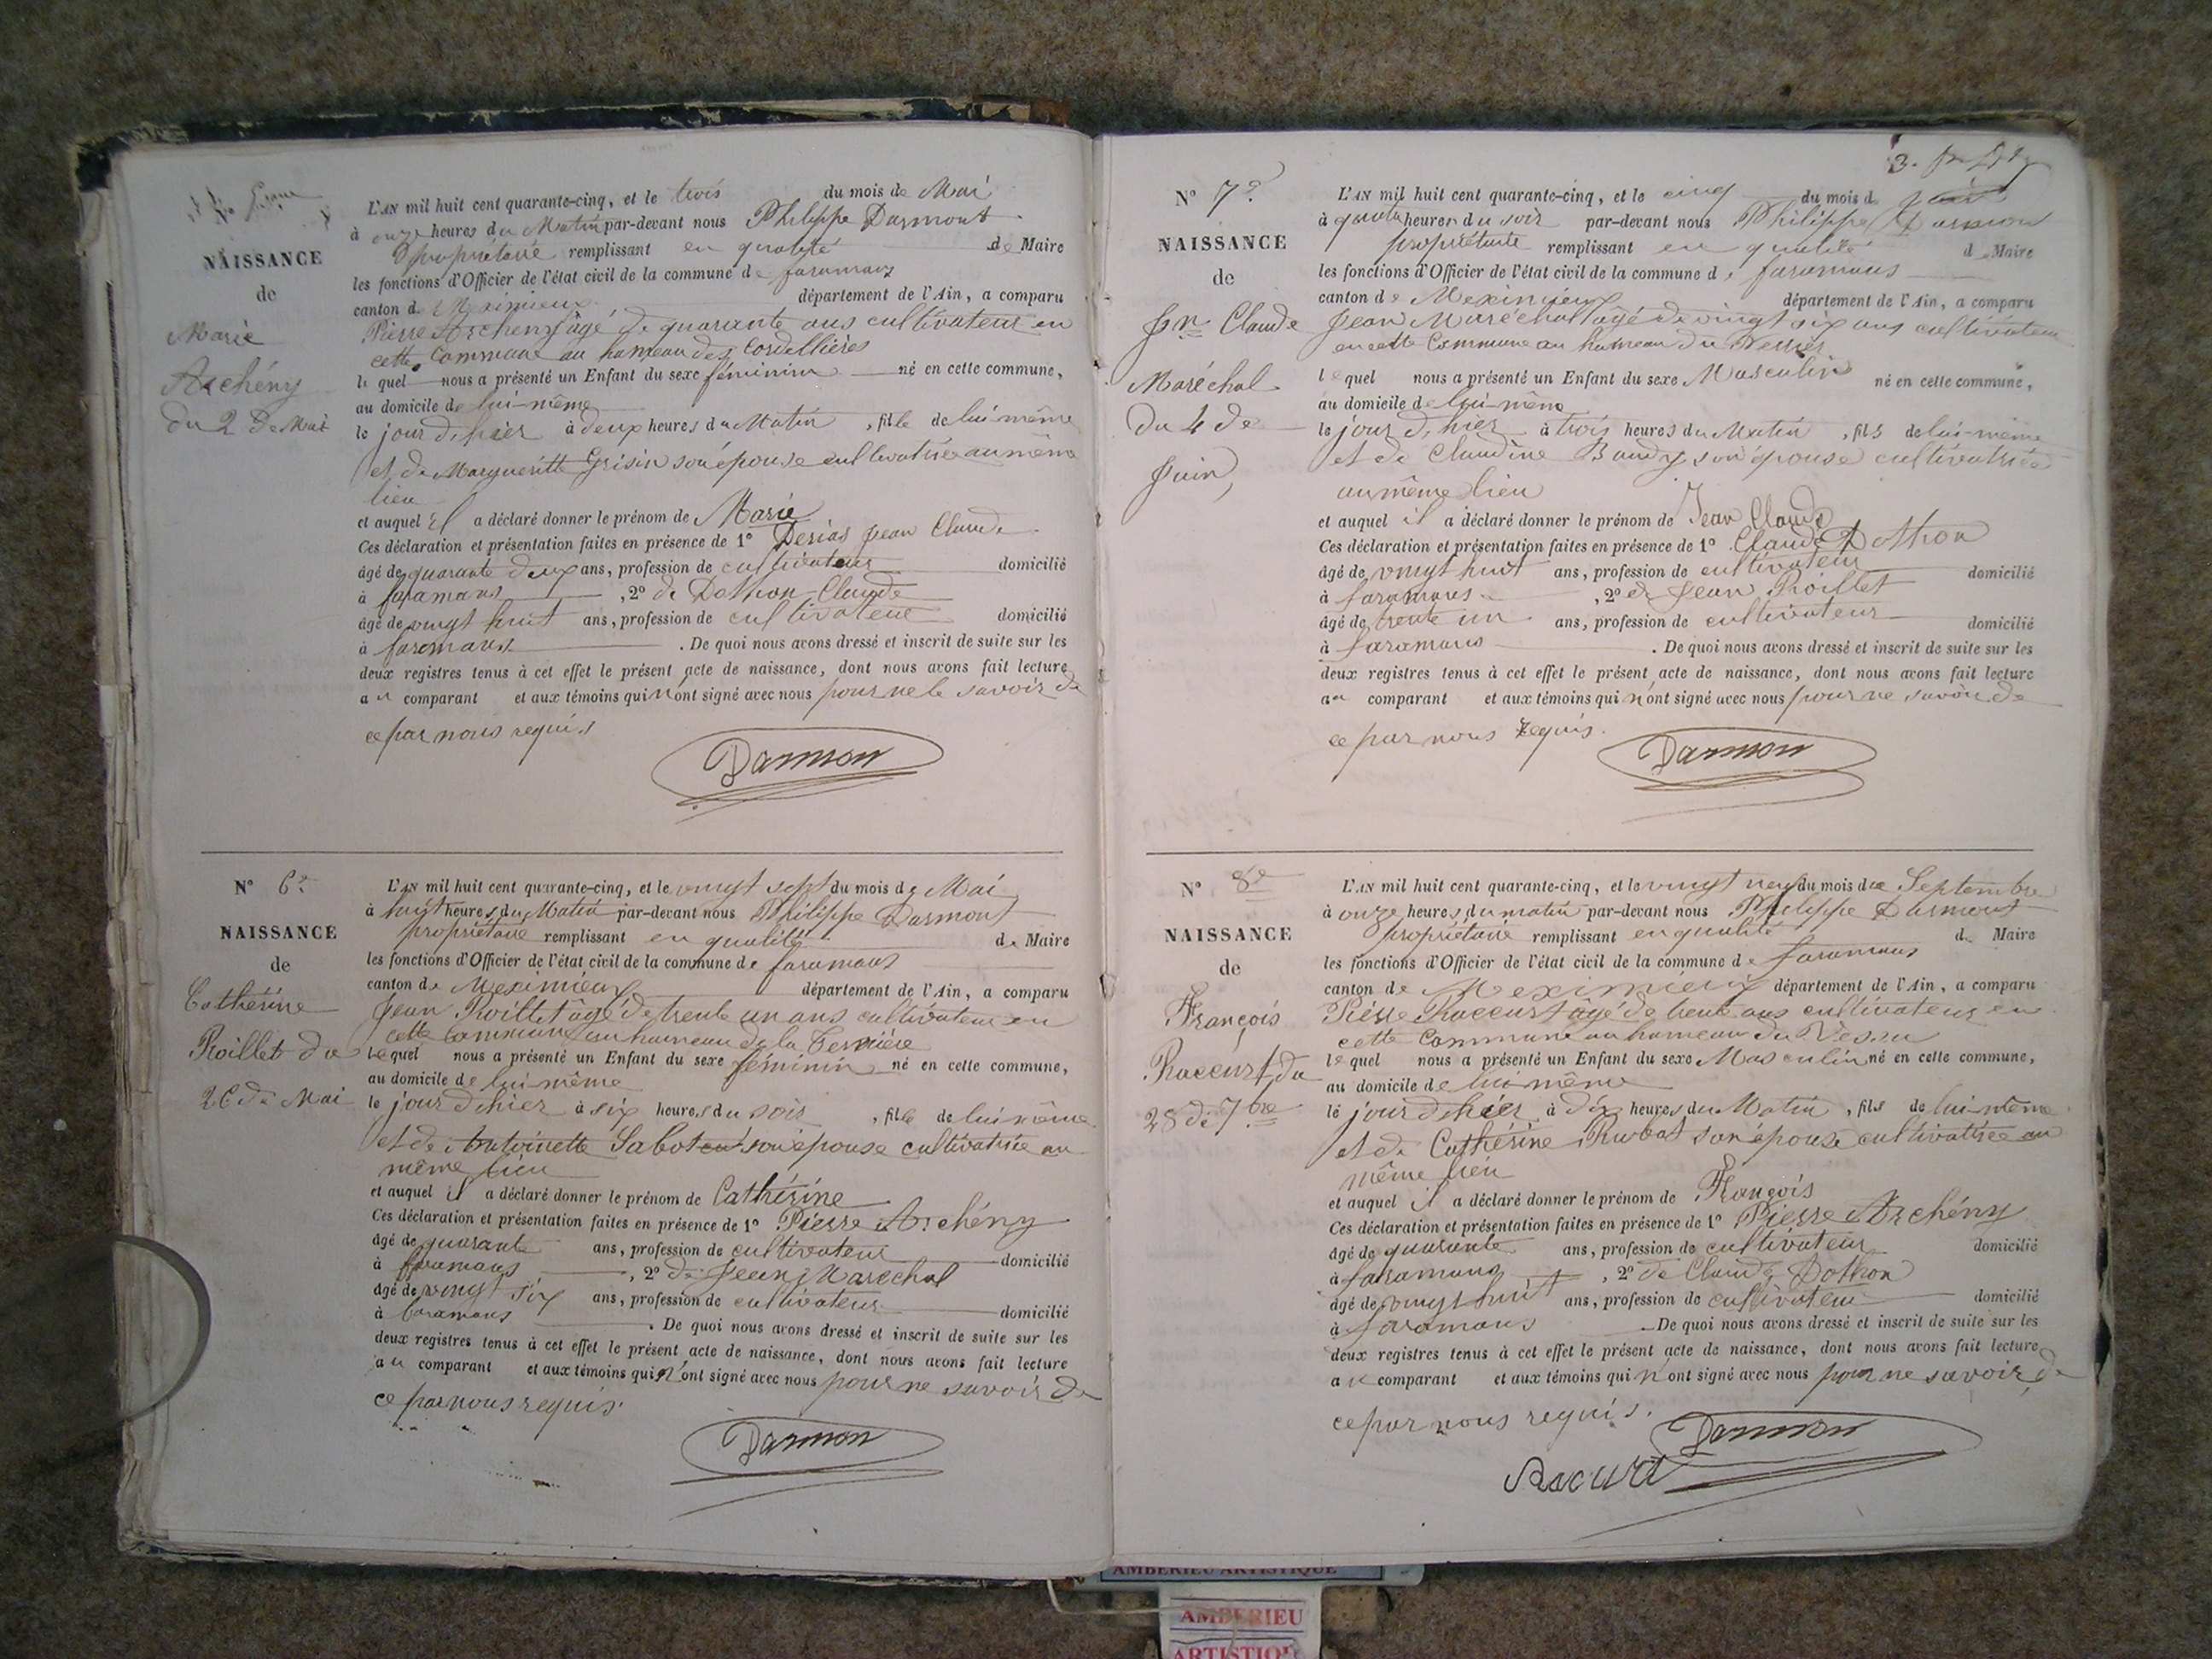 NAISSANCE
de
Marie
Archény
du 2 de Mai
L'AN mil huit cent quarante-cinq, et le trois du mois de Mai
à onze heures du Matin par-devant nous Philippe Darmont
propriétaire remplissant en qualité de Maire
les fonctions d'Officier de l'état civil de la commune de faramans
canton de Meximieux département de l'Ain, a comparu
Pierre Archeny âgé de quarante ans cultivateur en
cette Commune au hameau des Cordellières
le quel nous a présenté un Enfant du sexe féminin né en cette commune,
au domicile de lui-même
le jour d'hier à deux heures du Matin, fille de lui même
et de Margueritte Grisin son épouse cultivatrice au même
lieu
et auquel il a déclaré donner le prénom de Marie
Ces déclaration et présentation faites en présence de 1° Desias Jean Claude
âgé de quarante deux ans, profession de cultivateur domicilié
à faramans, 2° de Dothon Claude
âgé de vingt huit ans, profession de cultivateur domicilié
à faramans. De quoi nous avons dressé et inscrit de suite sur les
deux registres tenus à cet effet le présent acte de naissance, dont nous avons fait lecture
au comparant et aux témoins qui n'ont signé avec nous pour ne le savoir de
ce par nous requis
Darmon
N° 6e
NAISSANCE
de
Cathérine
Roillet du
26 de Mai
L'AN mil huit cent quarante-cinq, et le vingt sept du mois de Mai
à huit heures du Matin par-devant nous Philippe Darmont
propriétaire remplissant en qualité de Maire
les fonctions d'Officier de l'état civil de la commune de faramans
canton de Meximieux département de l'Ain, a comparu
Jean Roillet âgé de trente un ans cultivateur en
cette Commune au hameau de la
le quel nous a présenté un Enfant du sexe féminin né en cette commune,
au domicile de lui même
le jour d'hier à six heures du soir, fille de lui même
et de Antoinette son épouse cultivatrice au
même lieu
et auquel il a déclaré donner le prénom de Cathérine
Ces déclaration et présentation faites en présence de 1° Pierre Archény
âgé de quarante ans, profession de cultivateur domicilié
à faramans, 2° de Jean Maréchal
âgé de vingt six ans, profession de cultivateur domicilié
à faramans. De quoi nous avons dressé et inscrit de suite sur les
deux registres tenus à cet effet le présent acte de naissance, dont nous avons fait lecture
au comparant et aux témoins qui n'ont signé avec nous pour ne savoir de
ce par nous requis.
Darmon
3.
N° 7e
NAISSANCE
de
Jn Claude
Maréchal
du 4 de
Juin
L'AN mil huit cent quarante-cinq, et le cinq du mois de Juin
à quatre heures du soir par-devant nous Philippe Darmont
propriétaire remplissant en qualité de Maire
les fonctions d'Officier de l'état civil de la commune de faramans
canton de Meximieux département de l'Ain, a comparu
Jean Maréchal âgé de vingt six ans cultivateur
en cette Commune au hameau du
le quel nous a présenté un Enfant du sexe Masculin né en cette commune,
au domicile de lui-même
le jour d'hier à trois heures du Matin, fils de lui-même
et de Claudine Baudy son épouse cultivatrice
au même lieu
et auquel il a déclaré donner le prénom de Jean Claude
Ces déclaration et présentation faites en présence de 1° Claude Dothon
âgé de vingt huit ans, profession de cultivateur domicilié
à faramans, 2° de Jean Roillet
âgé de trente un ans, profession de cultivateur domicilié
à faramans. De quoi nous avons dressé et inscrit de suite sur les
deux registres tenus à cet effet le présent acte de naissance, dont nous avons fait lecture
au comparant et aux témoins qui n'ont signé avec nous pour ne savoir de
ce par nous requis.
Darmon
N° 8e
NAISSANCE
de
François
Raccurt du
28 de 7bre
L'AN mil huit cent quarante-cinq, et le vingt neuf du mois de Septembre
à onze heures du matin par-devant nous Philippe Darmont
propriétaire remplissant en qualité de Maire
les fonctions d'Officier de l'état civil de la commune de faramans
canton de Meximieux département de l'Ain, a comparu
Pierre Raccurt âgé de trente ans cultivateur en
cette Commune au hameau du
le quel nous a présenté un Enfant du sexe Masculin né en cette commune,
au domicile de lui même
le jour d'hier à dix heures du Matin, fils de lui-même
et de Cathérine Rubat son épouse cultivatrice au
même lieu
et auquel il a déclaré donner le prénom de François
Ces déclaration et présentation faites en présence de 1° Pierre Archény
âgé de quarante ans, profession de cultivateur domicilié
à faramans, 2° de Claude Dothon
âgé de vingt huit ans, profession de cultivateur domicilié
à faramans. De quoi nous avons dressé et inscrit de suite sur les
deux registres tenus à cet effet le présent acte de naissance, dont nous avons fait lecture
au comparant et aux témoins qui n'ont signé avec nous pour ne savoir de
ce par nous requis.
Darmon
Raccurt
AMBERIEU ARTISTIQUE
AMBERIEU
ARTISTIQU